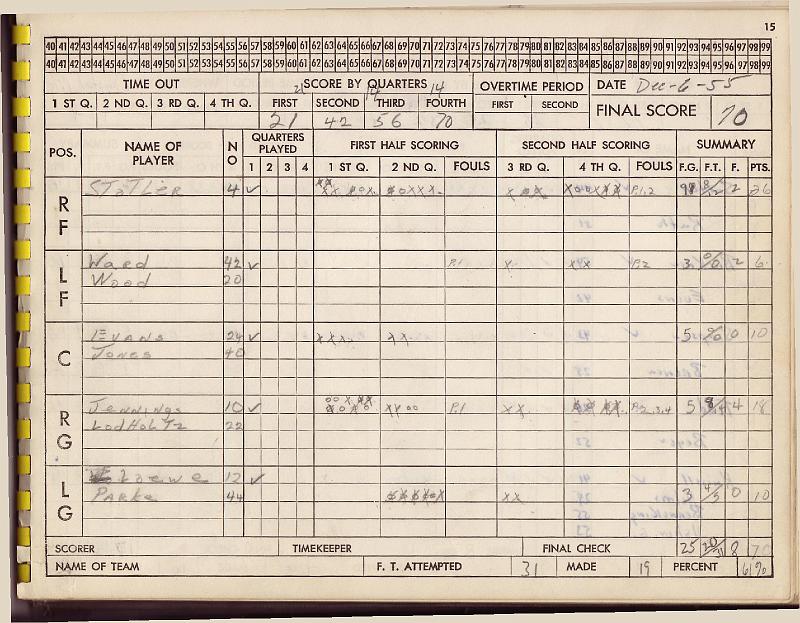 15
40 41 42 43 44 45 46 47 48 49 50 51 52 53 54 55 56 57 58 59 60 61 62 63 64 65 66 67 68 69 70 71 72 73 74 75 76 77 78 79 80 81 82 83 84 85 86 87 88 89 90 91 92 93 94 95 96 97 98 99
40 41 42 43 44 45 46 47 48 49 50 51 52 53 54 55 56 57 58 59 60 61 62 63 64 65 66 67 68 69 70 71 72 73 74 75 76 77 78 79 80 81 82 83 84 85 86 87 88 89 90 91 92 93 94 95 96 97 98 99
TIME OUT SCORE BY QUARTERS OVERTIME PERIOD DATE Dec-6-55
21 14 14
1 ST Q. 2 ND Q. 3 RD Q. 4 TH Q. FIRST SECOND THIRD FOURTH FIRST SECOND FINAL SCORE 70
21 42 56 70
POS. NAME OF PLAYER NO QUARTERS PLAYED FIRST HALF SCORING SECOND HALF SCORING SUMMARY
1 2 3 4 1 ST Q. 2 ND Q. FOULS 3 RD Q. 4 TH Q. FOULS F.G. F.T. F. PTS.
RF STATLER 4 P.1,2 2 26
LF Ward 42 P.1 P.2 3 0/0 2 6
Wood 20
C EVANS 24 5 0/0 0 10
Jones 40
RG Jennings 10 P.1 P.2,3,4 5 4 18
LodHoLTz 22
LG Loewe 12
PARKe 44 3 4/5 0 10
SCORER TIMEKEEPER FINAL CHECK 25 8 70
NAME OF TEAM F. T. ATTEMPTED 31 MADE 19 PERCENT 61%